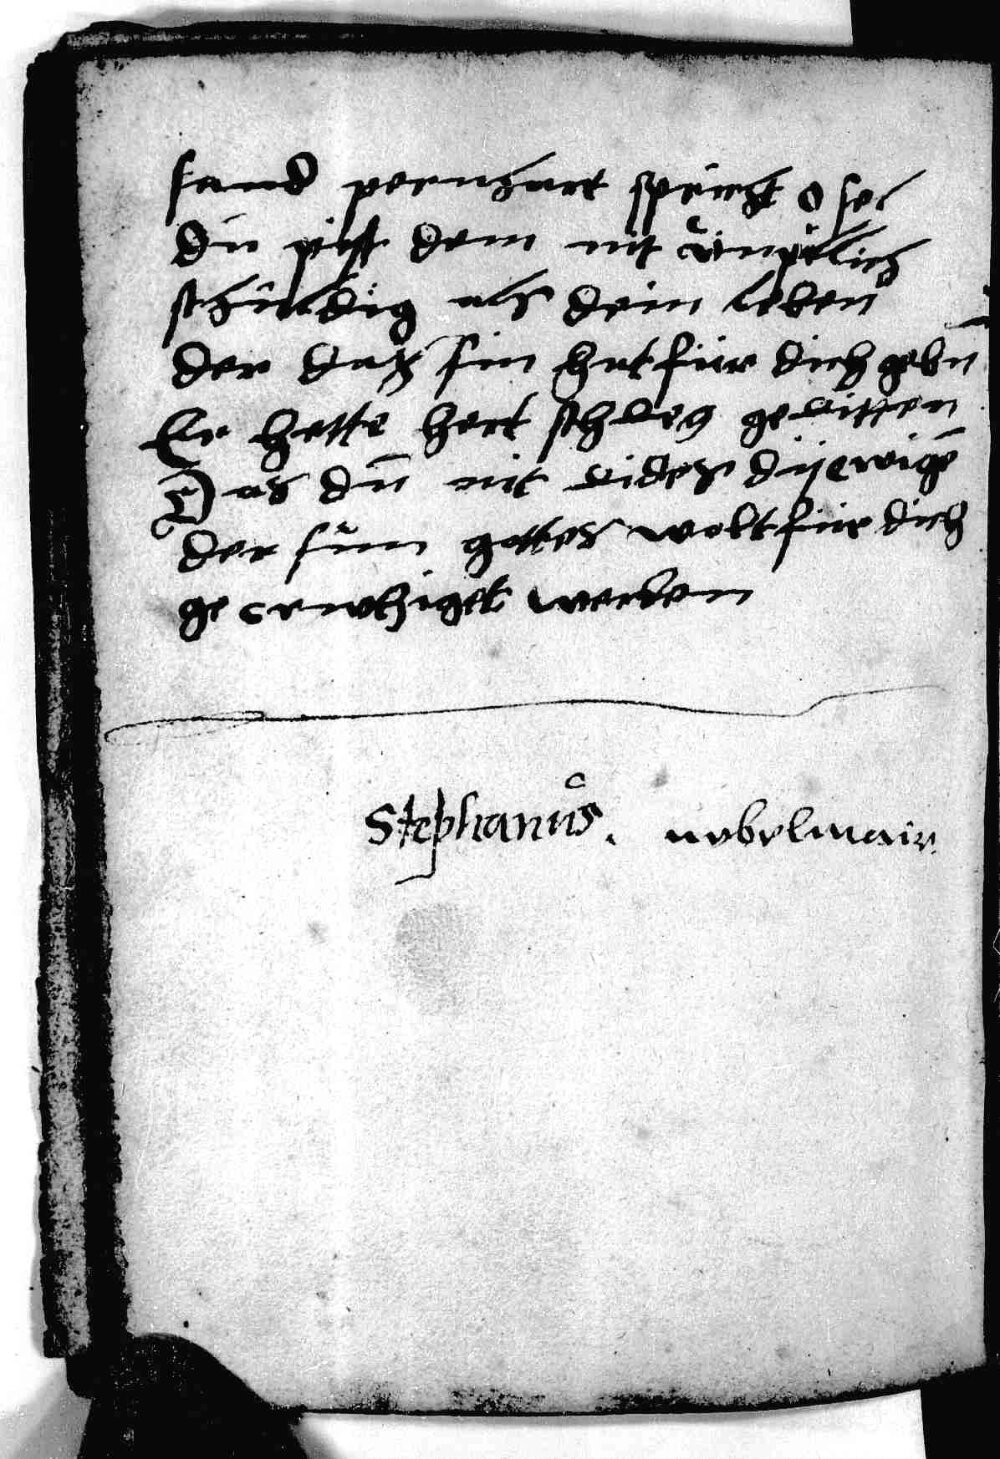 sand pernhart spricht o sel
du pist dem nit unpillich
schuldig als dein leben
der daß sin hat für dich gebn
Er hette hert schleg gelitten
Das dū nit lidest dy ewigē
der sun gottes wolt für dich
ge crewtziget werden
Stephanus. nebelmair.